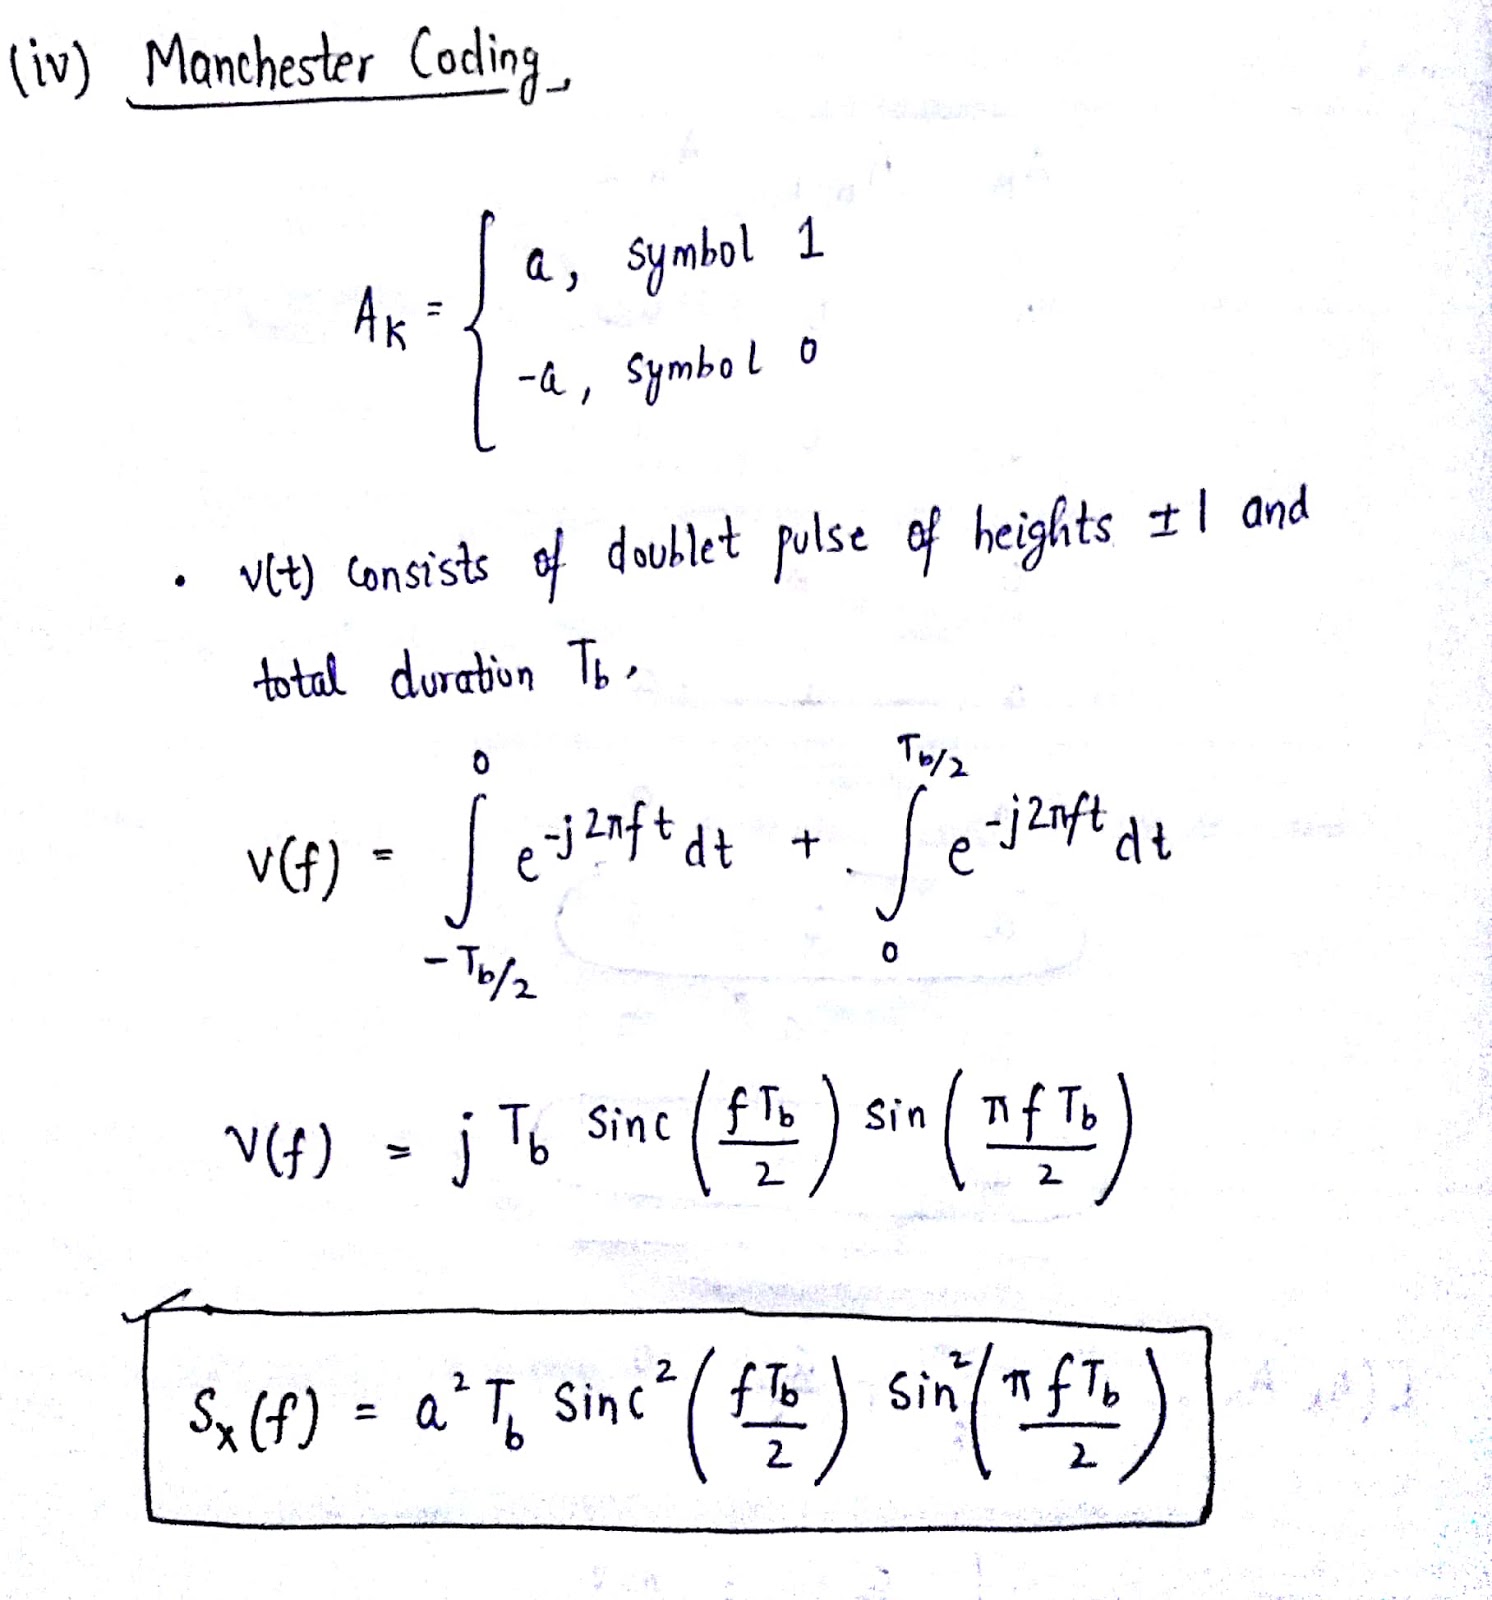 (iv) Manchester Coding
A_K = { a, symbol 1
-a, symbol 0
• v(t) consists of doublet pulse of heights ±1 and
total duration T_b.
V(f) = ∫_{-T_b/2}^{0} e^{-j2πft} dt + ∫_{0}^{T_b/2} e^{-j2πft} dt
V(f) = j T_b sinc (f T_b / 2) sin (π f T_b / 2)
S_x(f) = a² T_b sinc² (f T_b / 2) sin² (π f T_b / 2)